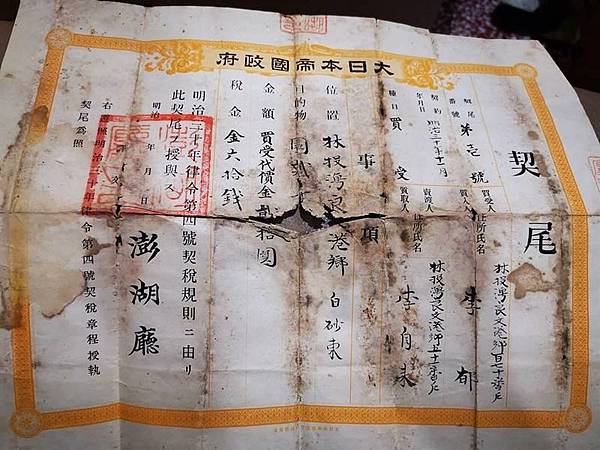 大日本帝國政府
契尾
契尾番號 第壱號
契約年月日 明治三十年十二月
種目 買受
買受人 住所氏名 林投灣良文港鄉百七十番戶
李郁
賣渡人 質取人 住所氏名 林投灣良文港鄉五十二番戶
李自來
事項
位置 林投灣良文港鄉 白砂東
目的物 園
金額 買受代價金貳拾圓
稅金 金六拾錢
明治三十年律令第四號契稅規則ニ由リ
此契尾ヲ授與ス
明治 年 月 日
澎湖廳
右遵照明治三十年律令第四號契稅章程授執
契尾為照